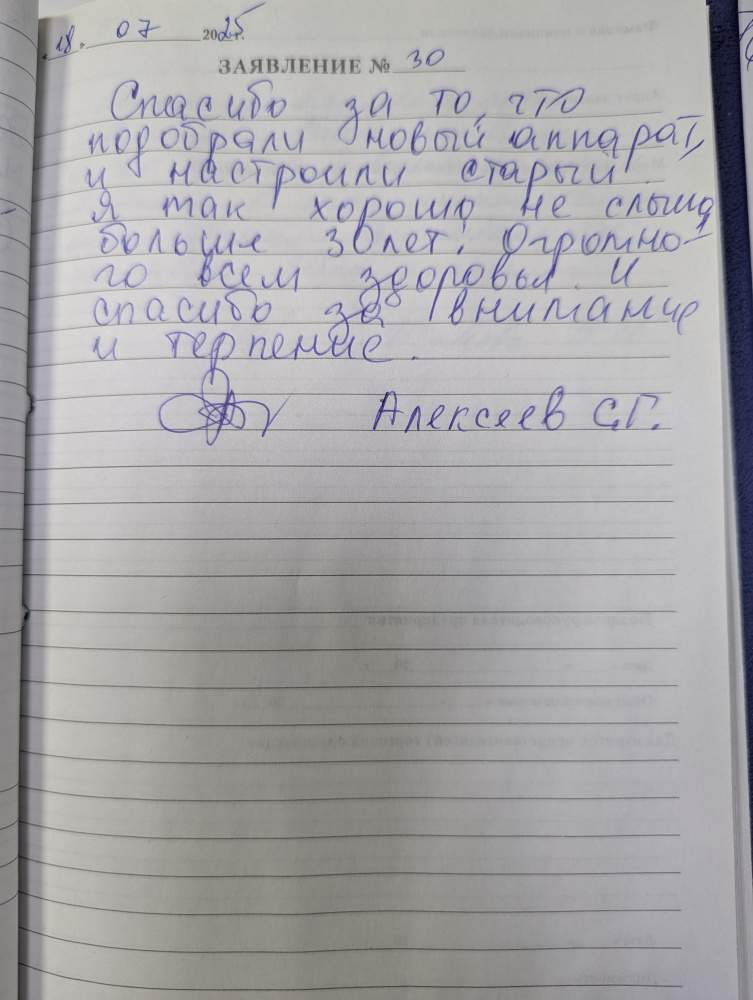 18. 07 2025г.
ЗАЯВЛЕНИЕ № 30
Спасибо за то, что
подобрали новый аппарат,
и настроили старый.
Я так хорошо не слышал
больше 30 лет! Огромно-
го всем здоровья и
спасибо за внимание
и терпение.
Алексеев С.Г.